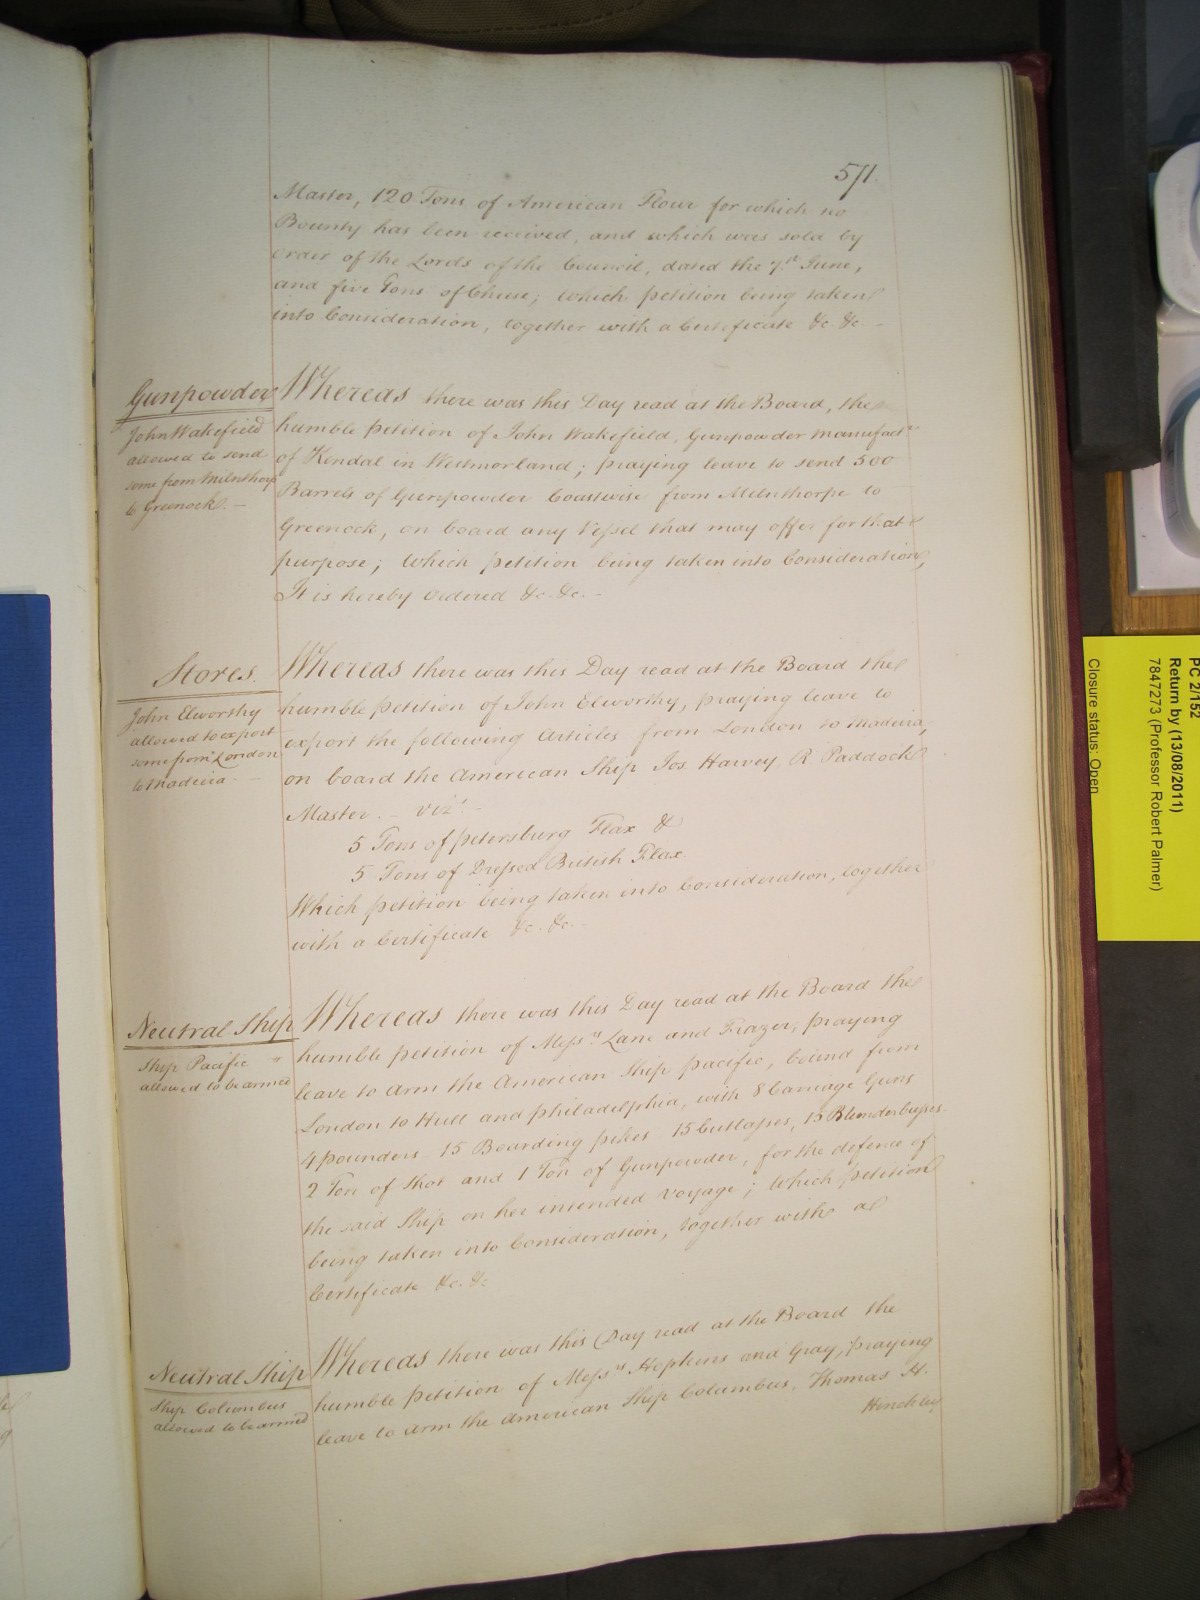 571.
Master, 120 Tons of American Flour for which no
Bounty has been received, and which was sold by
order of the Lords of the Council, dated the 7th June,
and five Tons of Cheese; Which petition being taken
into Consideration, together with a Certificate &c. &c. -
Gunpowder
John Wakefield
allowed to send
some from Milnthorp
to Greenock. -
Whereas there was this Day read at the Board, the
humble petition of John Wakefield, Gunpowder Manufactr
of Kendal in Westmorland; praying leave to send 500
Barrels of Gunpowder Coastwise from Milnthorpe to
Greenock, on board any Vessel that may offer for that
purpose; Which petition being taken into Consideration,
It is hereby ordered &c. &c. -
Stores.
John Elworthy
allowed to export
some from London
to Madeira -
Whereas there was this Day read at the Board the
humble petition of John Elworthy, praying leave to
export the following Articles from London to Madeira,
on board the American Ship Jos. Harvey, R. Paddock
Master. - vizt. -
5 Tons of petersburg Flax &
5 Tons of Dressed British Flax.
Which petition being taken into Consideration, together
with a Certificate &c. &c. -
Neutral Ship
Ship Pacific
allowed to be armed
Whereas there was this Day read at the Board the
humble petition of Messrs Lane and Frazer, praying
leave to arm the American Ship pacific, bound from
London to Hull and philadelphia, with 8 Carriage Guns
4 pounders 15 Boarding pikes 15 Cutlasses, 15 Blunderbusses
2 Ton of Shot and 1 Ton of Gunpowder, for the defence of
the said Ship on her intended Voyage; Which petition
being taken into Consideration, together with a
Certificate &c. &c
Neutral Ship
Ship Columbus
allowed to be armed
Whereas there was this Day read at the Board the
humble petition of Messrs Hopkins and Gray, praying
leave to arm the American Ship Columbus, Thomas H.
Hinckley
PC 2/152
Return by (13/08/2011)
7847273 (Professor Robert Palmer)
Closure status: Open